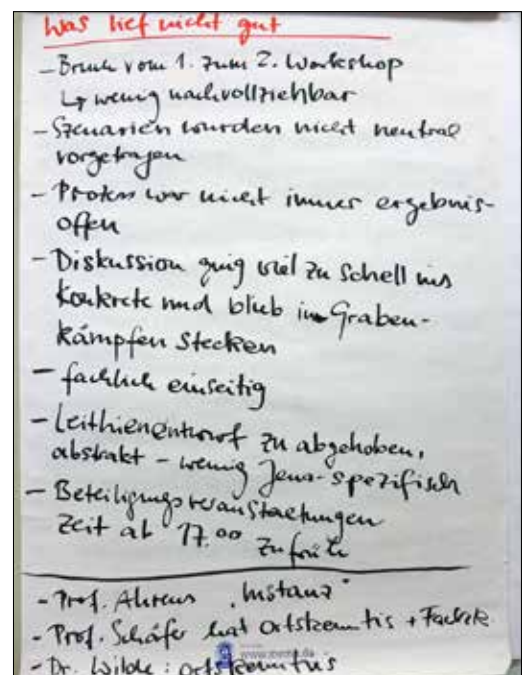 Was lief nicht gut
- Bruch vom 1. zum 2. Workshop
↳ wenig nachvollziehbar
- Szenarien wurden nicht neutral
vorgetragen
- Prozess war nicht immer ergebnis-
offen
- Diskussion ging viel zu schnell ins
Konkrete und blieb in Graben-
kämpfen stecken
- fachlich einseitig
- Leitlinienentwurf zu abgehoben,
abstrakt - wenig Jena-spezifisch
- Beteiligungsveranstaltungen
Zeit ab 17.00 zu früh
- Prof. Ahrens "Instanz"
- Prof. Schäfer hat Ortskenntnis +
- Dr. Wilde: Ortskenntnis